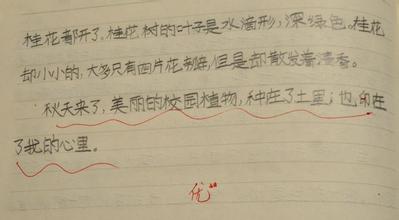 桂花都开了。桂花树的叶子是水滴形，深绿色。桂花
却小小的，大多只有四片花瓣，但是却散发着清香。
秋天来了，美丽的校园植物，种在了土里；也印在
了我的心里。
优